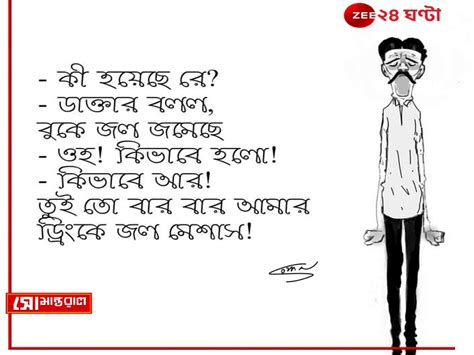 ZEE ২৪ ঘণ্টা
- কী হয়েছে রে?
- ডাক্তার বলল,
বুকে জল জমেছে
- ওহ! কিভাবে হলো!
- কিভাবে আর!
তুই তো বার বার আমার
ড্রিংকে জল মেশাস!
সোমান্তরাল